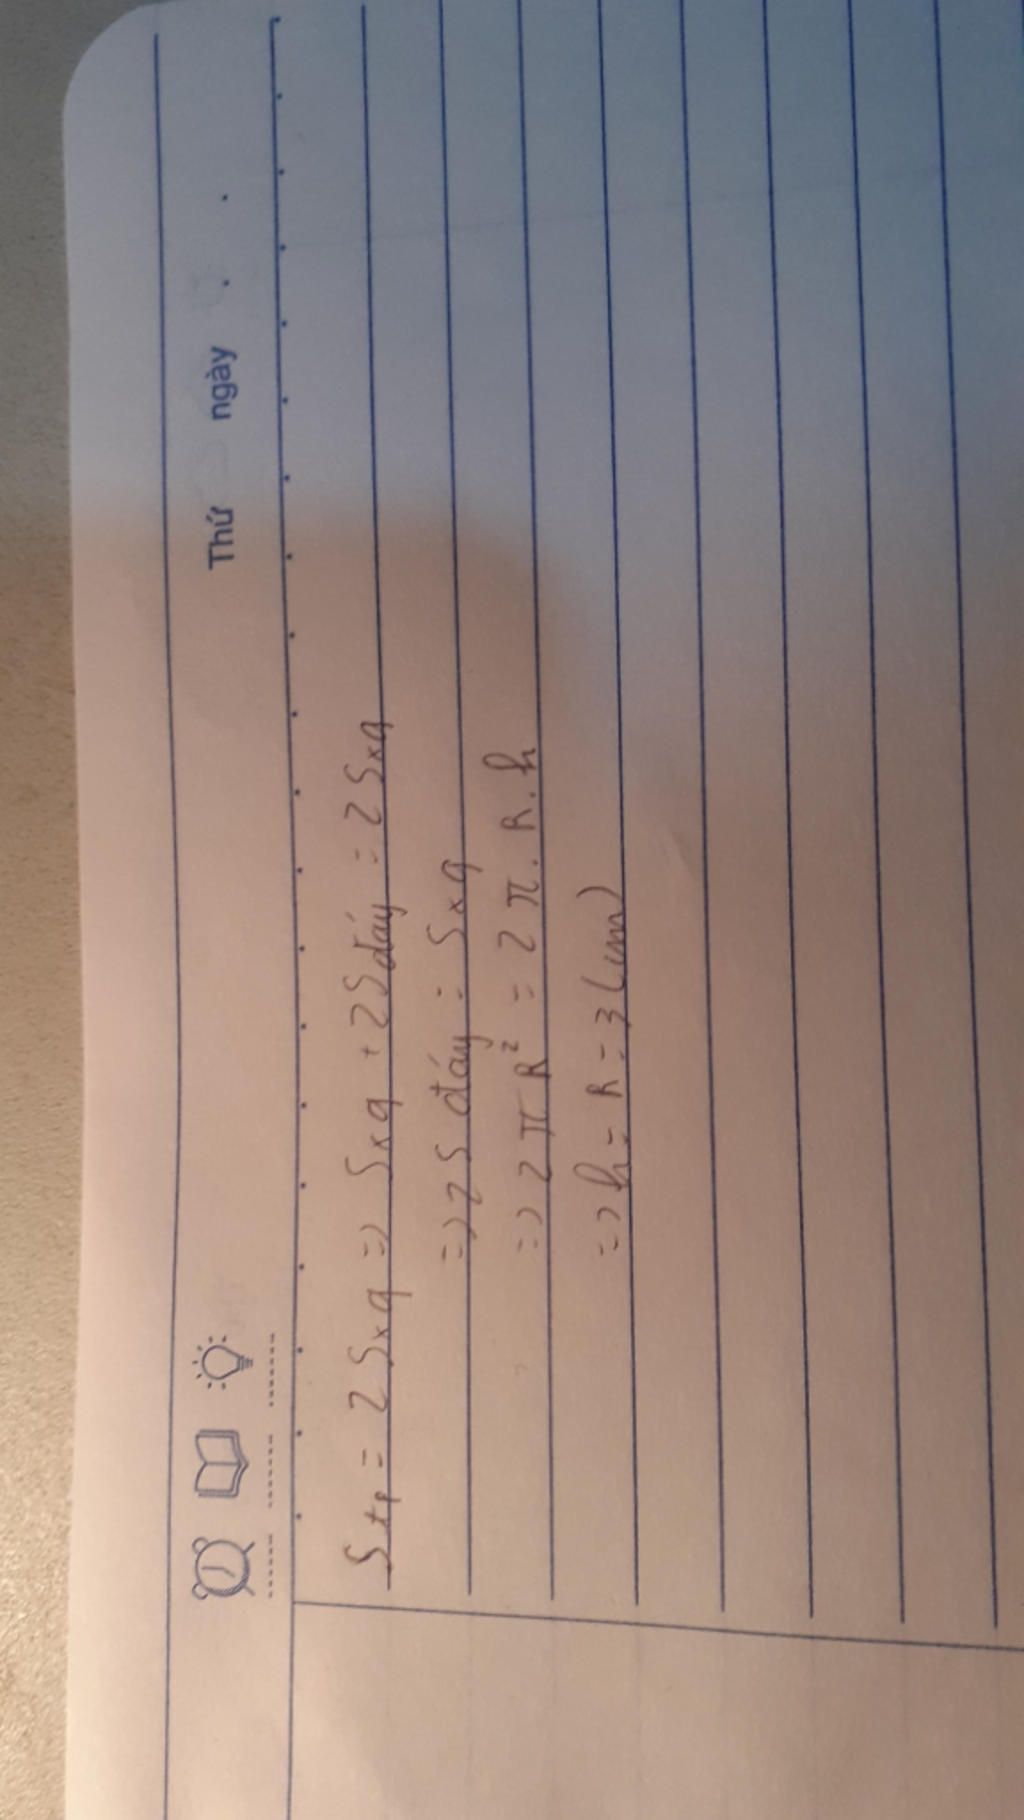 Thứ ngày . .
Stp = 2 Sxq => Sxq + 2Sđáy = 2Sxq
=> 2S đáy = Sxq
=> 2πR² = 2π.R.h
=> h = R = 3 (cm)